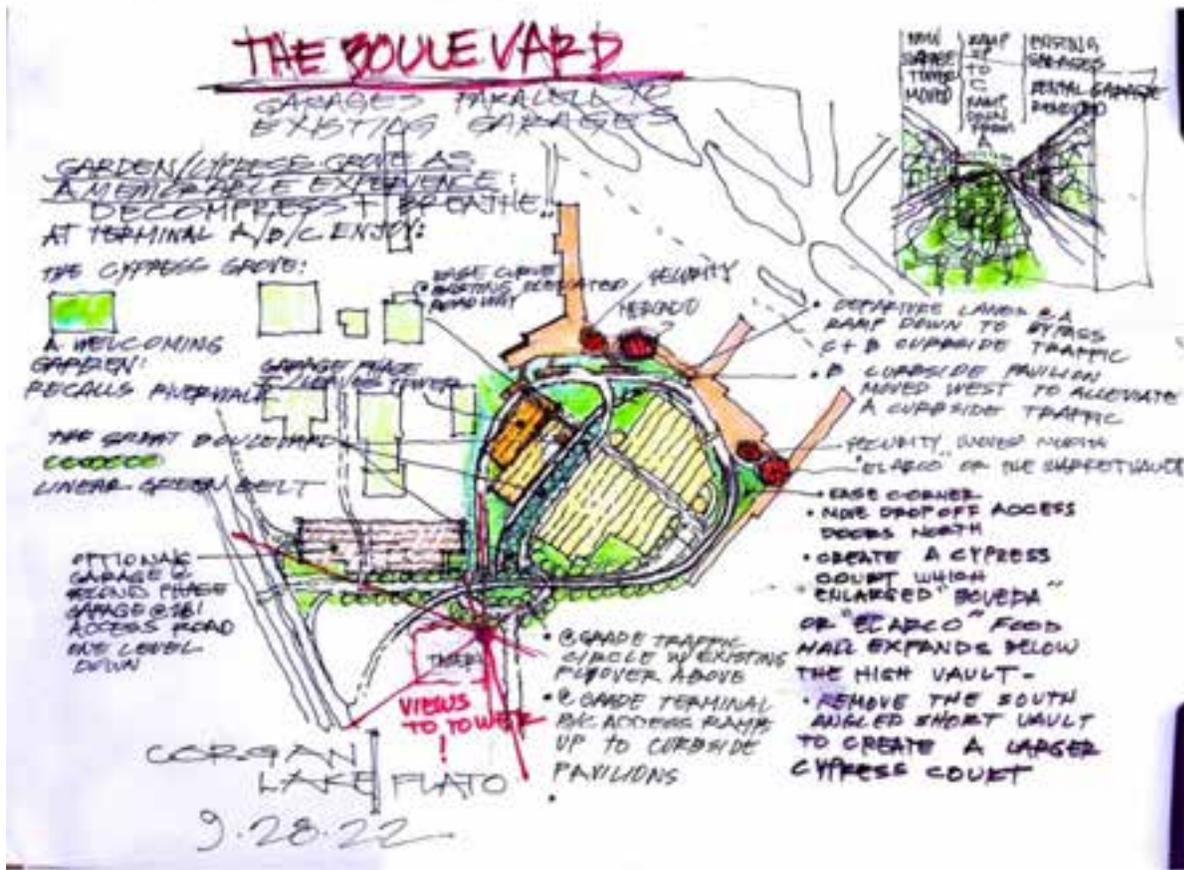 THE BOULEVARD
GARAGES PARALELL TO
EXISTING GARAGES
GARDEN/CYPRESS GROVE AS
A MEMORABLE EXPERIENCE:
DECOMPRESS + BREATHE!!
AT TERMINAL A/B/C ENJOY:
THE CYPRESS GROVE:
A WELCOMING
GARDEN:
RECALLS RIVERWALK
THE GREAT BOULEVARD
LINEAR GREEN BELT
EASE CURVE
@ EXISTING ELEVATED
ROADWAY
SECURITY
MERCADO
?
GARAGE PHASE
LEAVES TOWER
OPTIONAL
GARAGE @
SECOND PHASE
GARAGE @ 281
ACCESS ROAD
ONE LEVEL
DOWN
TOWER
VIEWS
TO TOWER
!
CORGAN
LAKE FLATO
9.28.22
NEW
GARAGE
TOWER
MOVED
RAMP
UP
TO
C
RAMP
DOWN
FROM
EXISTING
GARAGES
RENTAL GARAGE
REMOVED
• DEPARTURE LANES
RAMP DOWN TO BYPASS
C + B CURBSIDE TRAFFIC
• B CURBSIDE PAVILION
MOVED WEST TO ALLEVIATE
A CURBSIDE TRAFFIC
SECURITY MOVED NORTH
"EL ARCO" OR THE MARKET
• EASE CORNER
• MOVE DROP OFF ACCESS
DOORS NORTH
• CREATE A CYPRESS
COURT WHICH
ENLARGED "BOVEDA"
OR "EL ARCO" FOOD
HALL EXPANDS BELOW
THE HIGH VAULT -
• REMOVE THE SOUTH
ANGLED SHORT VAULT
TO CREATE A LARGER
CYPRESS COURT
• @ GRADE TRAFFIC
CIRCLE W EXISTING
FLYOVER ABOVE
• @ GRADE TERMINAL
B/C ACCESS RAMPS
UP TO CURBSIDE
PAVILIONS